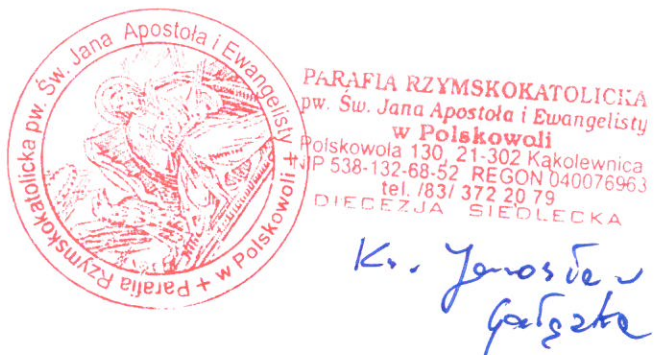 + Parafia Rzymskokatolicka pw. Św. Jana Apostoła i Ewangelisty + w Polskowoli
PARAFIA RZYMSKOKATOLICKA
pw. Św. Jana Apostoła i Ewangelisty
w Polskowoli
Polskowola 130, 21-302 Kąkolewnica
NIP 538-132-68-52 REGON 040076963
tel. /83/ 372 20 79
DIECEZJA SIEDLECKA
Ks. Jarosław
Gałązka